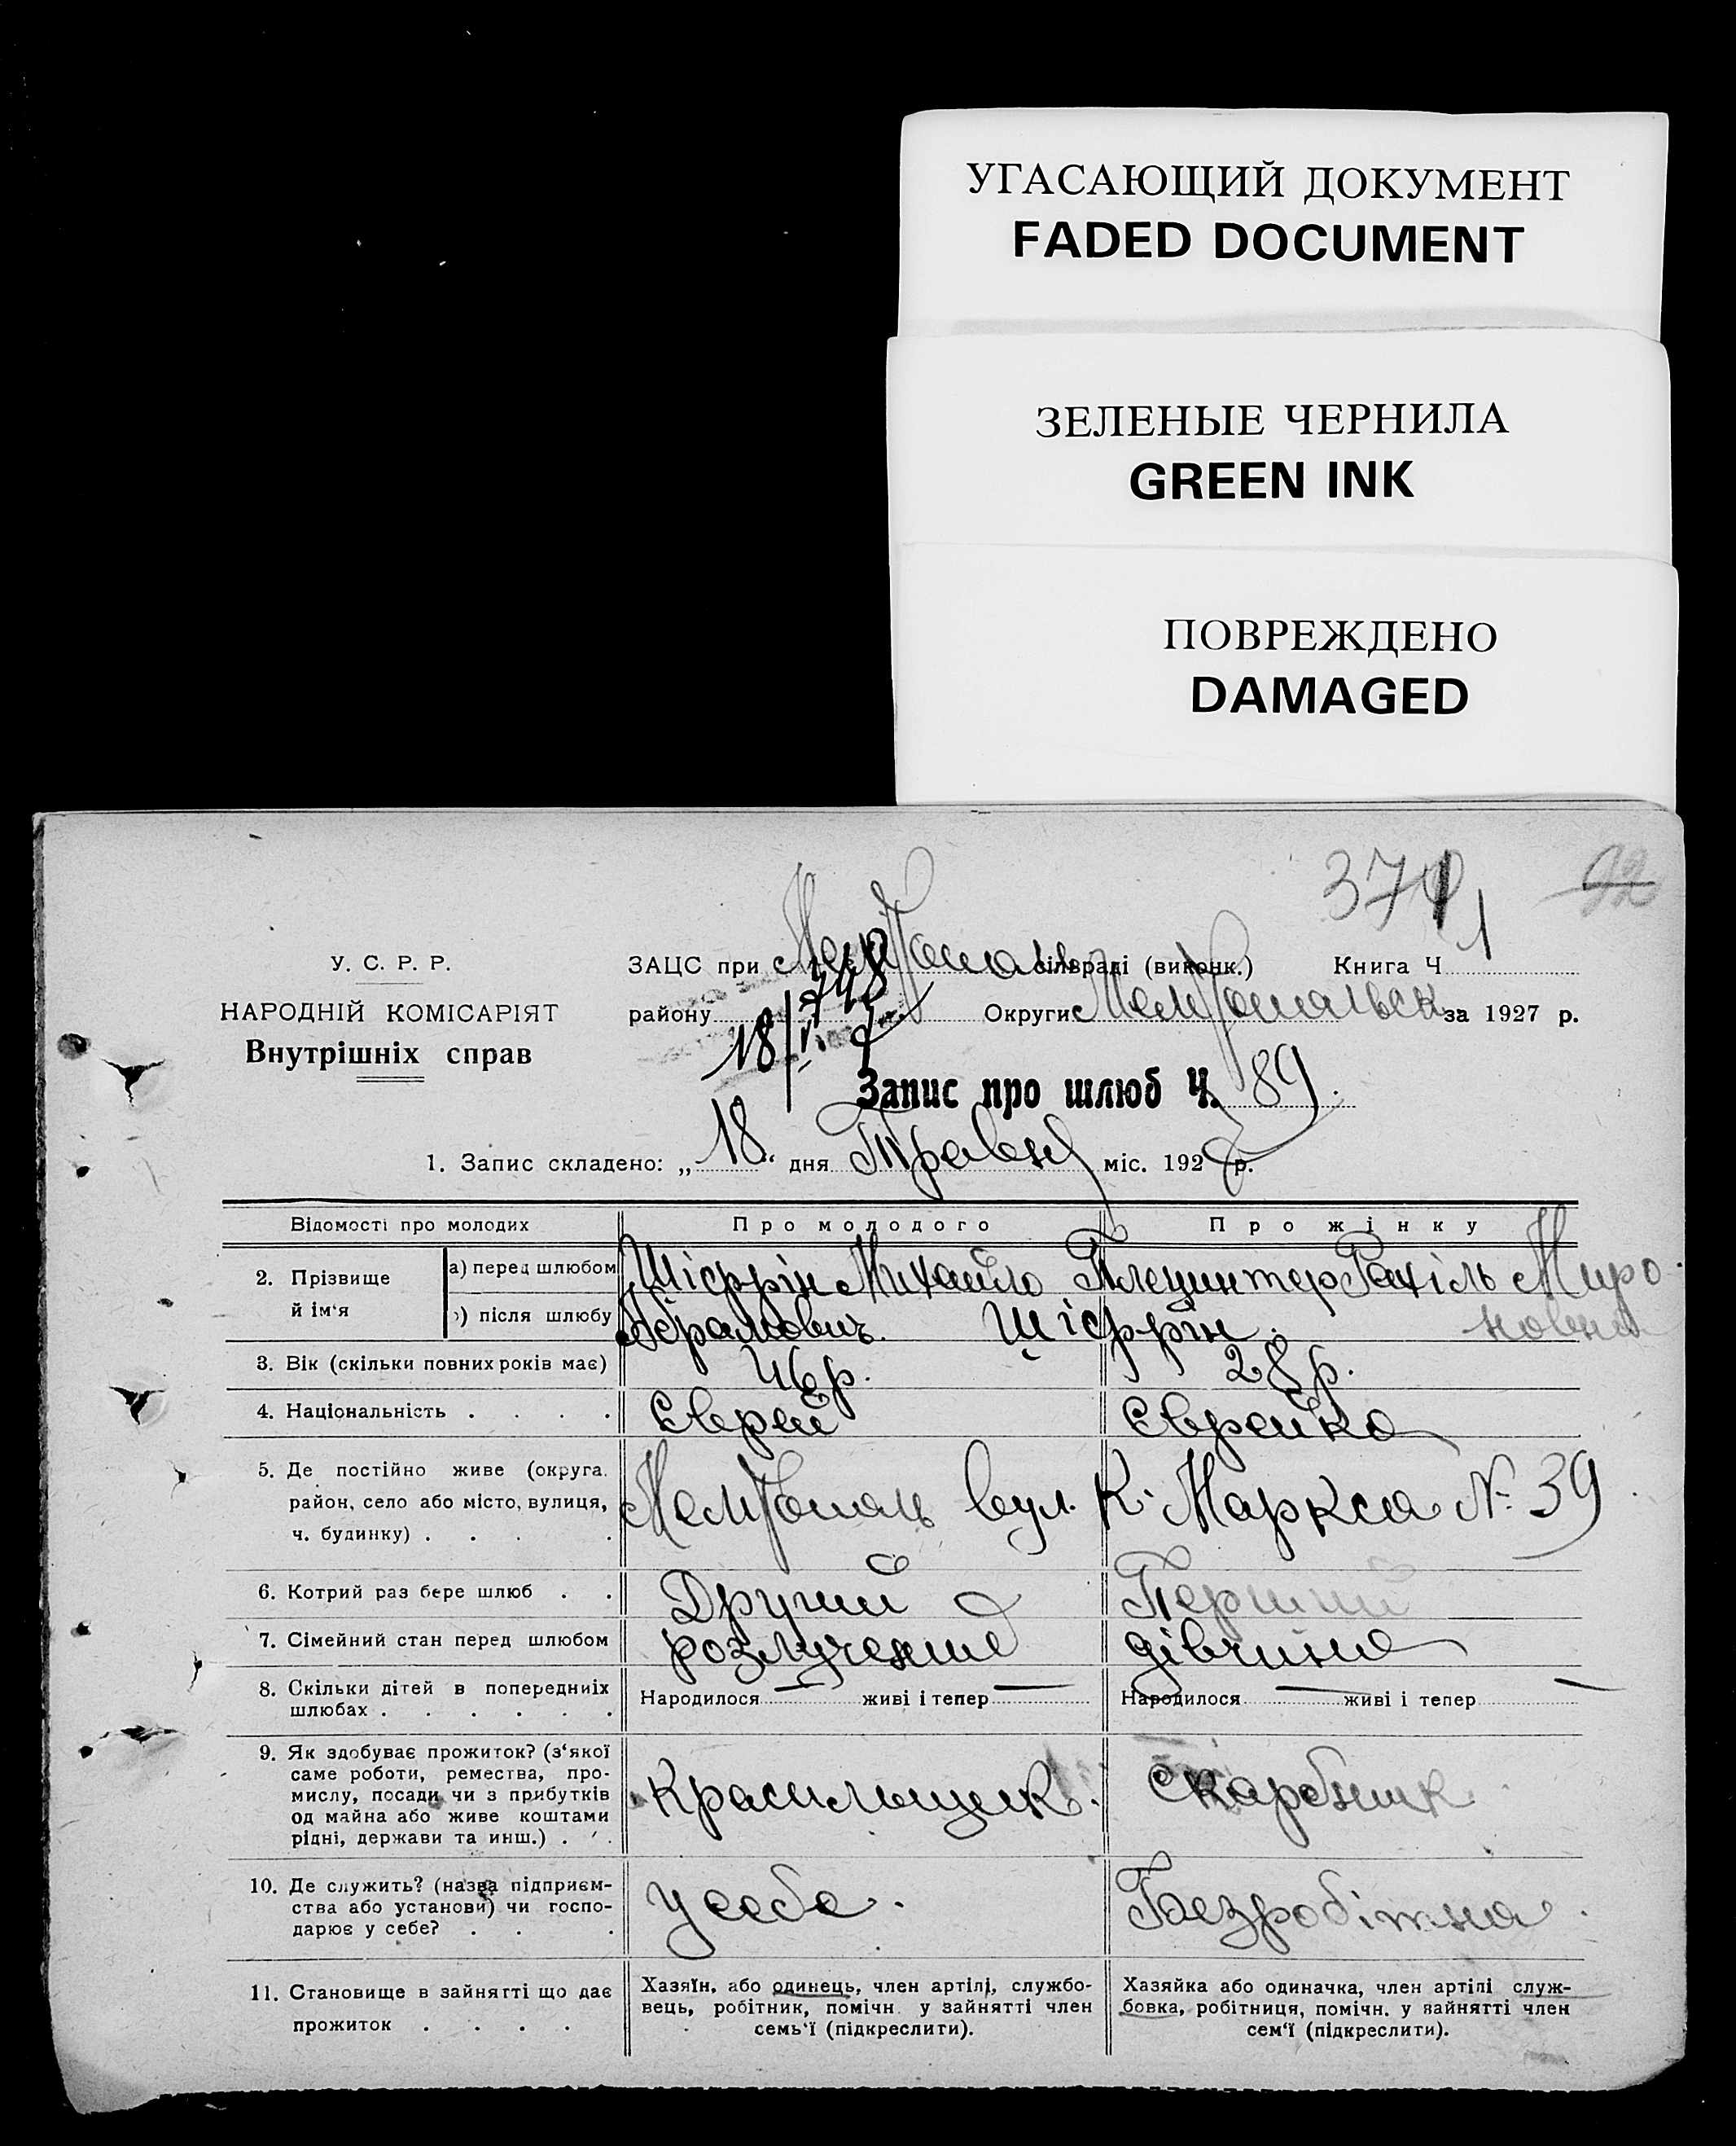 УГАСАЮЩИЙ ДОКУМЕНТ
FADED DOCUMENT
ЗЕЛЕНЫЕ ЧЕРНИЛА
GREEN INK
ПОВРЕЖДЕНО
DAMAGED
У. С. Р. Р.
НАРОДНІЙ КОМІСАРІЯТ
Внутрішніх справ
ЗАЦС при Мелітополь сільраді (виконк.) Книга Ч 1
району Округи Мелітопальськ за 1927 р.
748
18/V.
Запис про шлюб Ч. 89.
1. Запис складено: „18“ дня Травня міс. 1927 р.
Відомості про молодих Про молодого Про жінку
2. Прізвище й ім‘я
а) перед шлюбом Шіфрін Михайло Плецинтер Рахіль Миро-
) після шлюбу Абрамович. Шіфрін. новна
3. Вік (скільки повних років має) 46 р. 28 р.
4. Національність . . . . Єврей Єврейка
5. Де постійно живе (округа, район, село або місто, вулиця, ч. будинку) . . . . Мелітополь вул. К. Маркса № 39
6. Котрий раз бере шлюб . . Другий Перший
7. Сімейний стан перед шлюбом розлучений дівчина
8. Скільки дітей в попередниіх шлюбах . . . . . . Народилося — живі і тепер — Народилося — живі і тепер —
9. Як здобуває прожиток? (з‘якої саме роботи, ремества, промислу, посади чи з прибутків од майна або живе коштами рідні, держави та инш.) . . . Красильщик. Скарбник
10. Де служить? (назва підприємства або установи) чи господарює у себе? . . . У себе. Безробітна.
11. Становище в зайнятті що дає прожиток . . . .
Хазяїн, або одинець, член артілі, службовець, робітник, помічн. у зайнятті член семь‘ї (підкреслити).
Хазяйка або одиначка, член артілі службовка, робітниця, помічн. у зайнятті член сем‘ї (підкреслити).